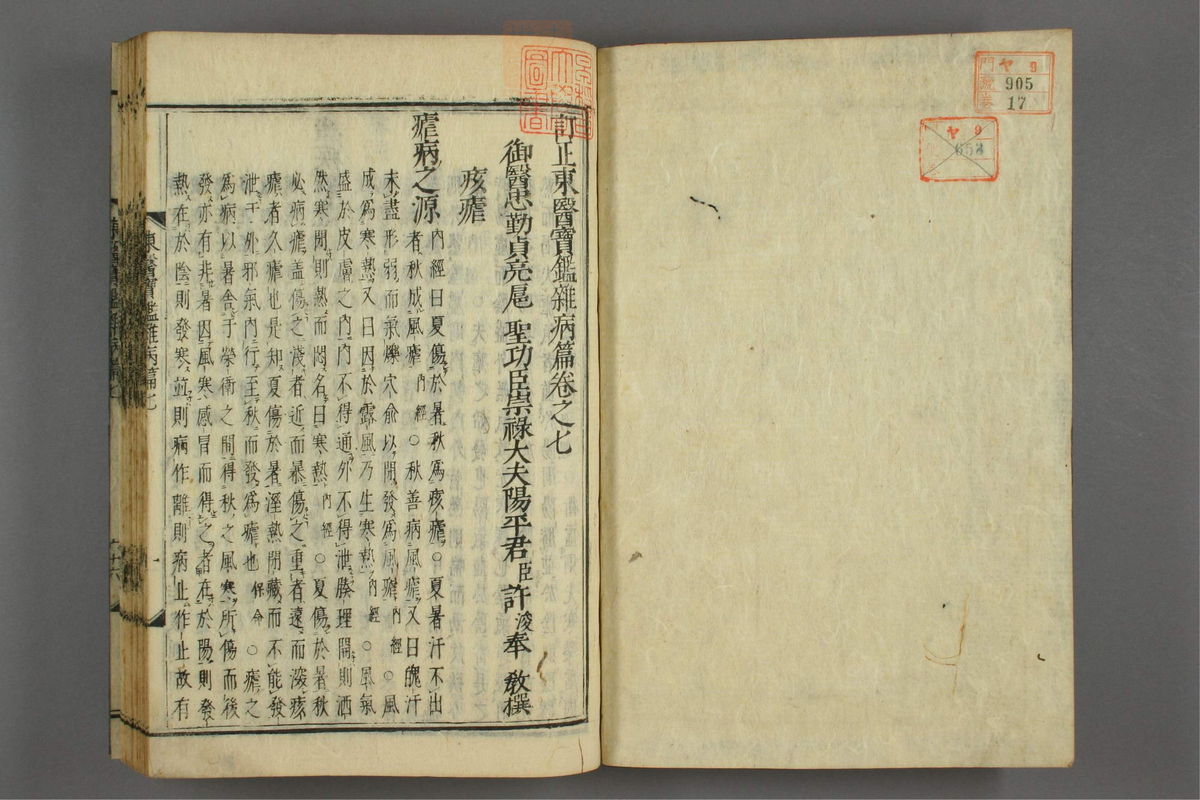 門 ヤ 9
號 905
巻 17
ヤ 9
658
訂正東醫寶鑑雜病篇卷之七
御醫忠勤貞亮扈 聖功臣崇祿大夫陽平君臣許浚奉 敎撰
痎瘧
瘧病之源
內經曰夏傷於暑秋爲痎瘧○夏暑汗不出
者秋成風瘧內經○秋善病風瘧又曰魄汗
未盡形弱而氣爍穴兪以閉發爲風瘧內經○風
成爲寒熱又曰因於露風乃生寒熱內經○風氣
盛於皮膚之內內不得通外不得泄腠理開則洒
然寒閉則熱而悶名曰寒熱內經○夏傷於暑秋
必病瘧盖傷之淺者近而暴傷之重者遠而深痎
瘧者久瘧也是知夏傷於暑濕熱閉藏而不能發
泄于外邪氣內行至秋而發爲瘧也保命○瘧之
爲病以暑舍于榮衛之間得秋之風寒所傷而後
發亦有非暑因風寒感冒而得之者在於陽則發
熱在於陰則發寒並則病作離則病止作止故有
東醫寶鑑雜病篇七
一